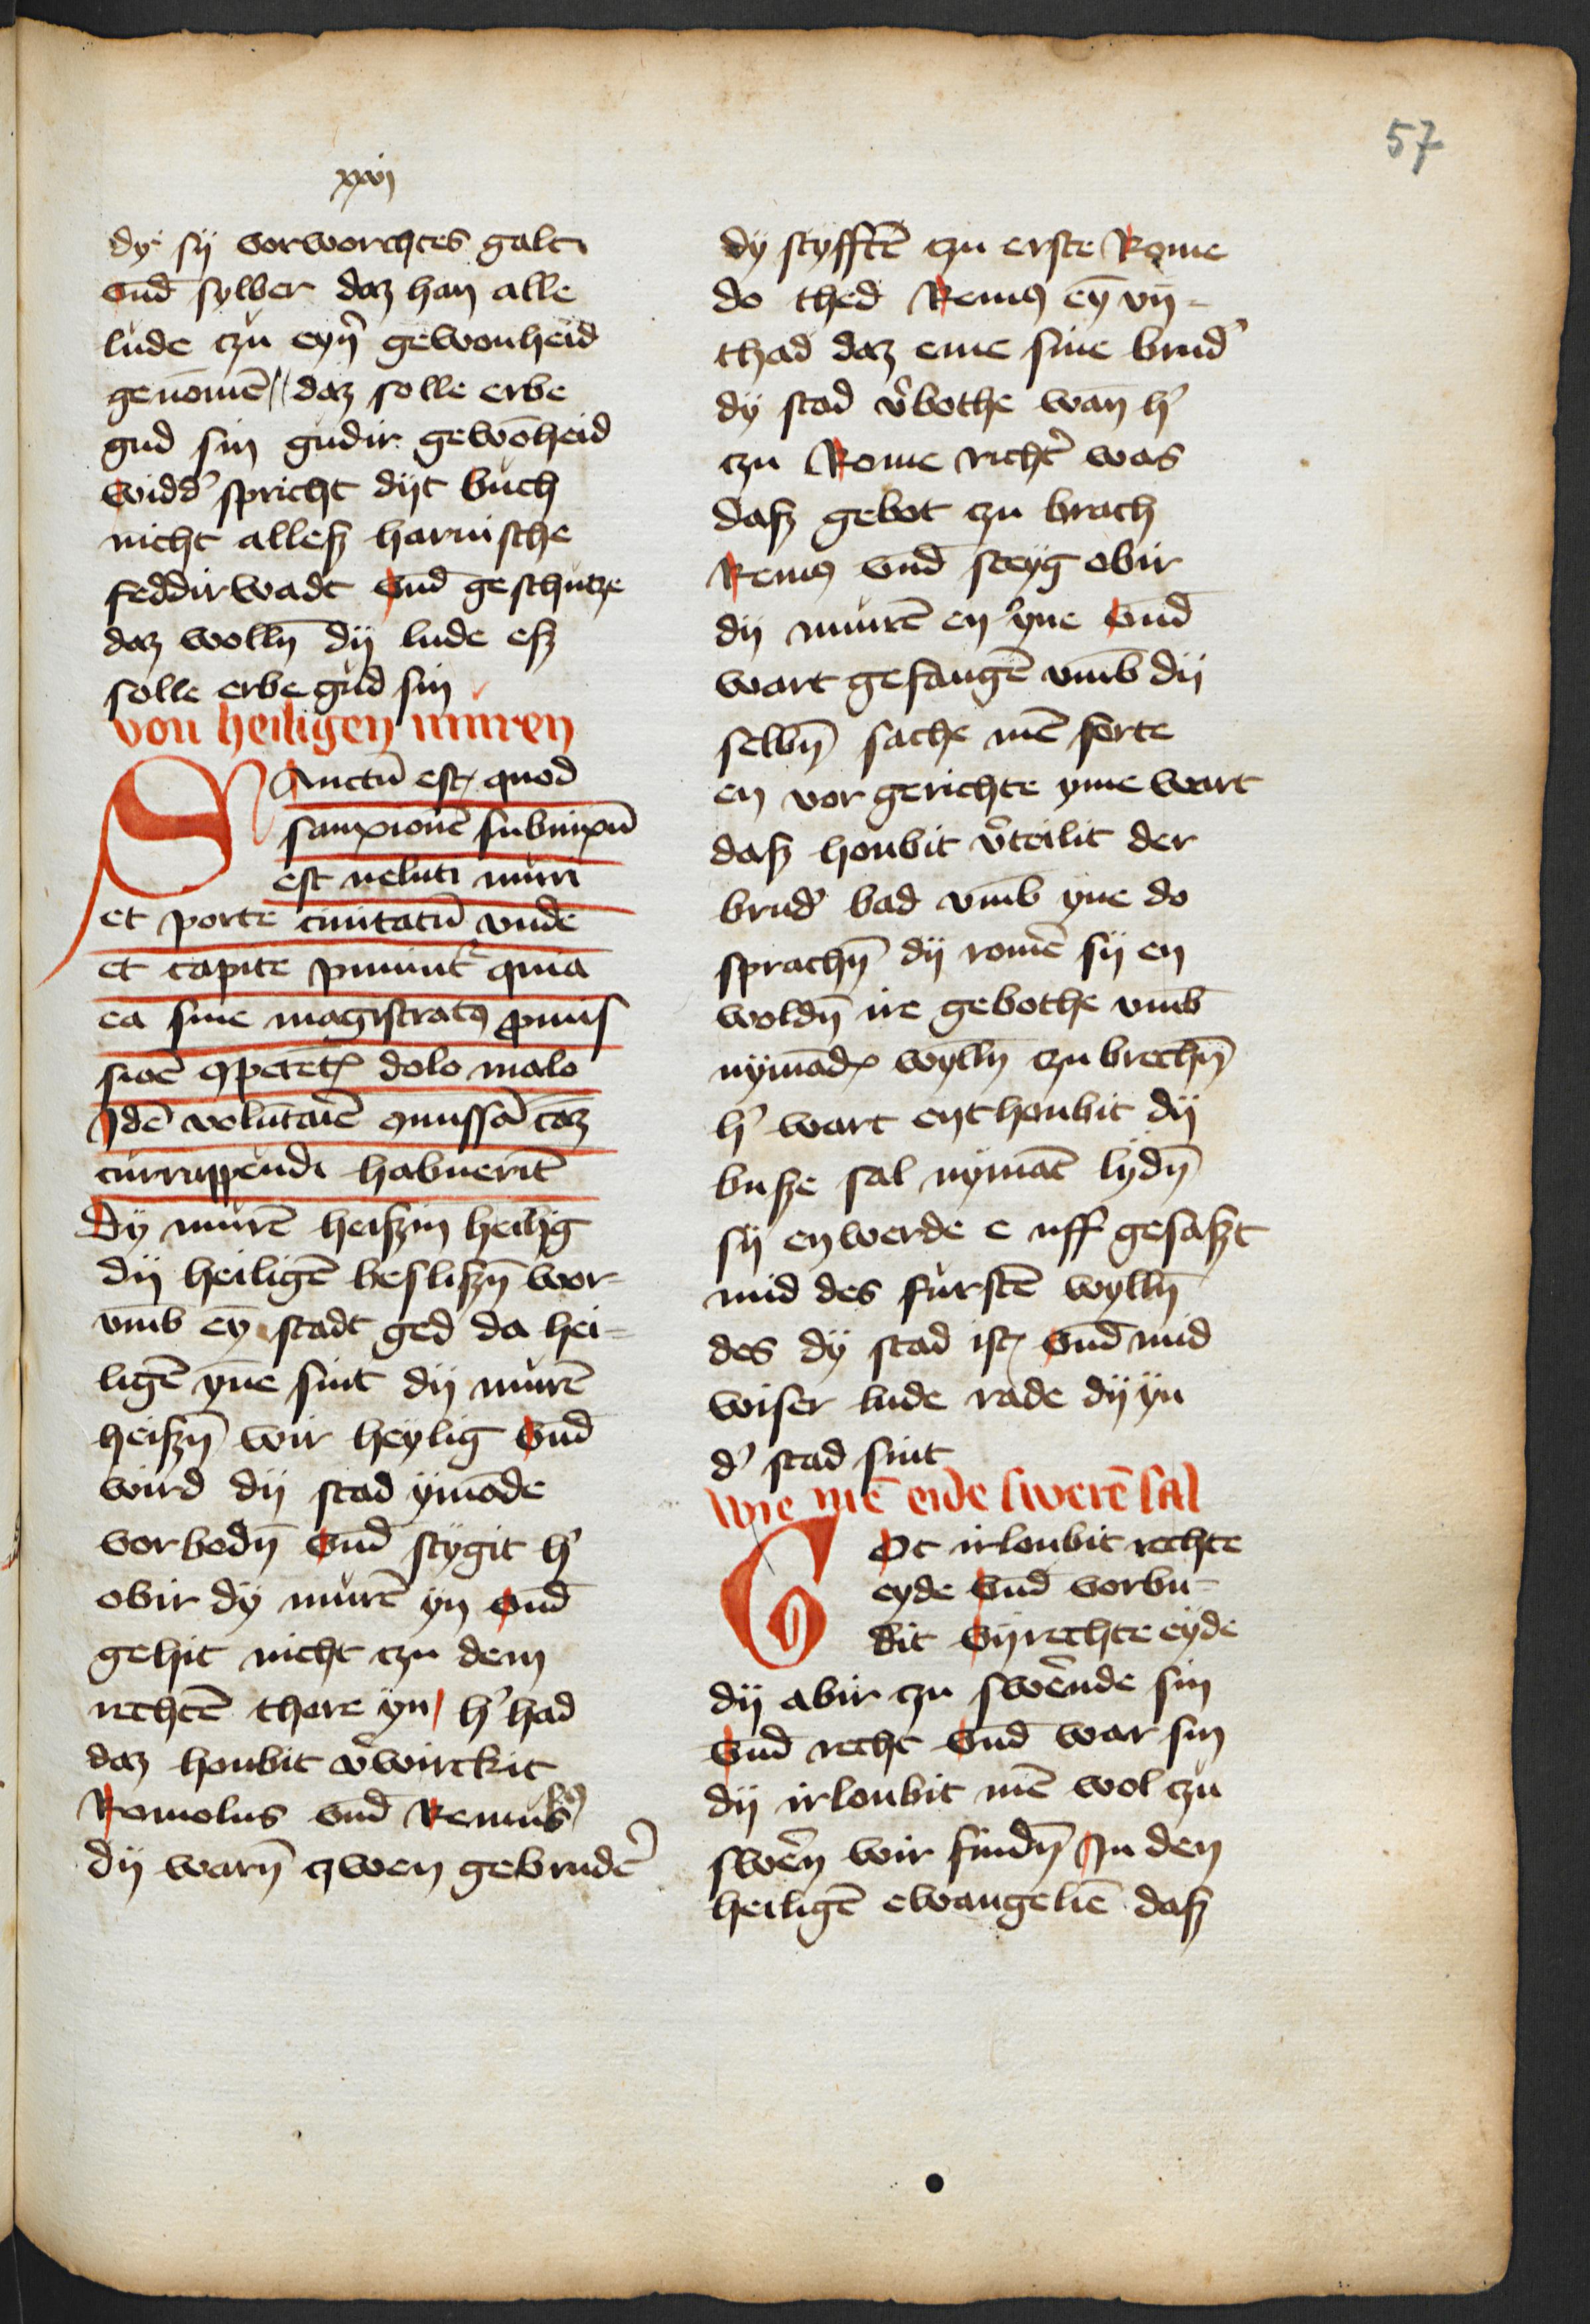 57
xxvj
dy sij vorworchtes galt
vnd̄ sylber daz han alle
lude czu eyn̄ gewonheid
genomē daz solle erbe
gud sin gudir gewōheid
widd' spricht dijt buch
nicht allesz harnische
feddirwadt vnd̄ geschutze
daz wolln̄ dij lude esz
solle erbe gud sin
von heiligen muren
SAnctū est quod
sanxionē subnixū
est veluti muri
et porte ciuitatū vnde
et capite puniūt' quia
ea sine magistratꝯ ꝓmis
sioē dolo malo
Idē
currūppendi habuerīt
Dy murē heiszin heilig
dij heiligē beslisz̄n wor-
vmb eȳ stadt ged da hei-
ligē yn̄e sint dij murē
heiszn̄ wir heylig vnd̄
wird dij stad ymāde
vorbodn̄ vnd̄ stygit h'
obir dy murē yn vnd̄
gehit nicht czu dem
rechtē thore yn h' had
daz houbit v'wirckit
Romolus vnd̄ Remus
dij warn̄ czwen gebrudē'
dij styfftē czu erste Rome
do thed Remꝯ eȳ vn-
thad daz eme sine brud'
dij stad v'bothe wan h'
czu Rome richt' was
dasz gebot czu brach
Remꝯ vnd̄ steyg obir
dij murē en yne vnd̄
wart gefangē vmb dij
selbn̄ sache mē forte
en vor gerichte yme wart
dasz houbit v'teilit der
brud' bad vmb yne do
sprachn̄ dij romē sij en
woldn̄ ire gebothe vmb
nymādꝭ wylln̄ czu brechn̄
h' wart enthoubit dij
busze sal nymāt lydn̄
sij en werde e uff gesaszt
mid des furstē wylln̄
des dy stad ist vnd̄ mid
wiser lude rade dij yn
d' stad sint
wie mē eide swerē sal
GOt irloubit rechte
eyde vnd̄ vorbu-
dit vnrechte eyde
dij abir czu swēnde sin
vnd̄ recht vnd̄ war sin
dij irloubit mē wol czu
swēn wir findn̄ In den
heiligē ewangeliē dasz